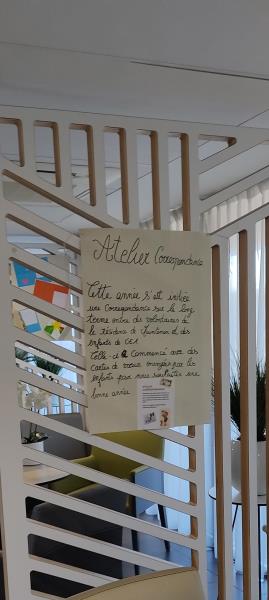 Atelier Correspondance
Cette année s'est initiée
une correspondance sur le long
terme entre des volontaires de
la résidence de et des
enfants de CE1
Celle-ci a commencé avec des
cartes de voeux envoyées par les
enfants pour nous souhaiter une
bonne année